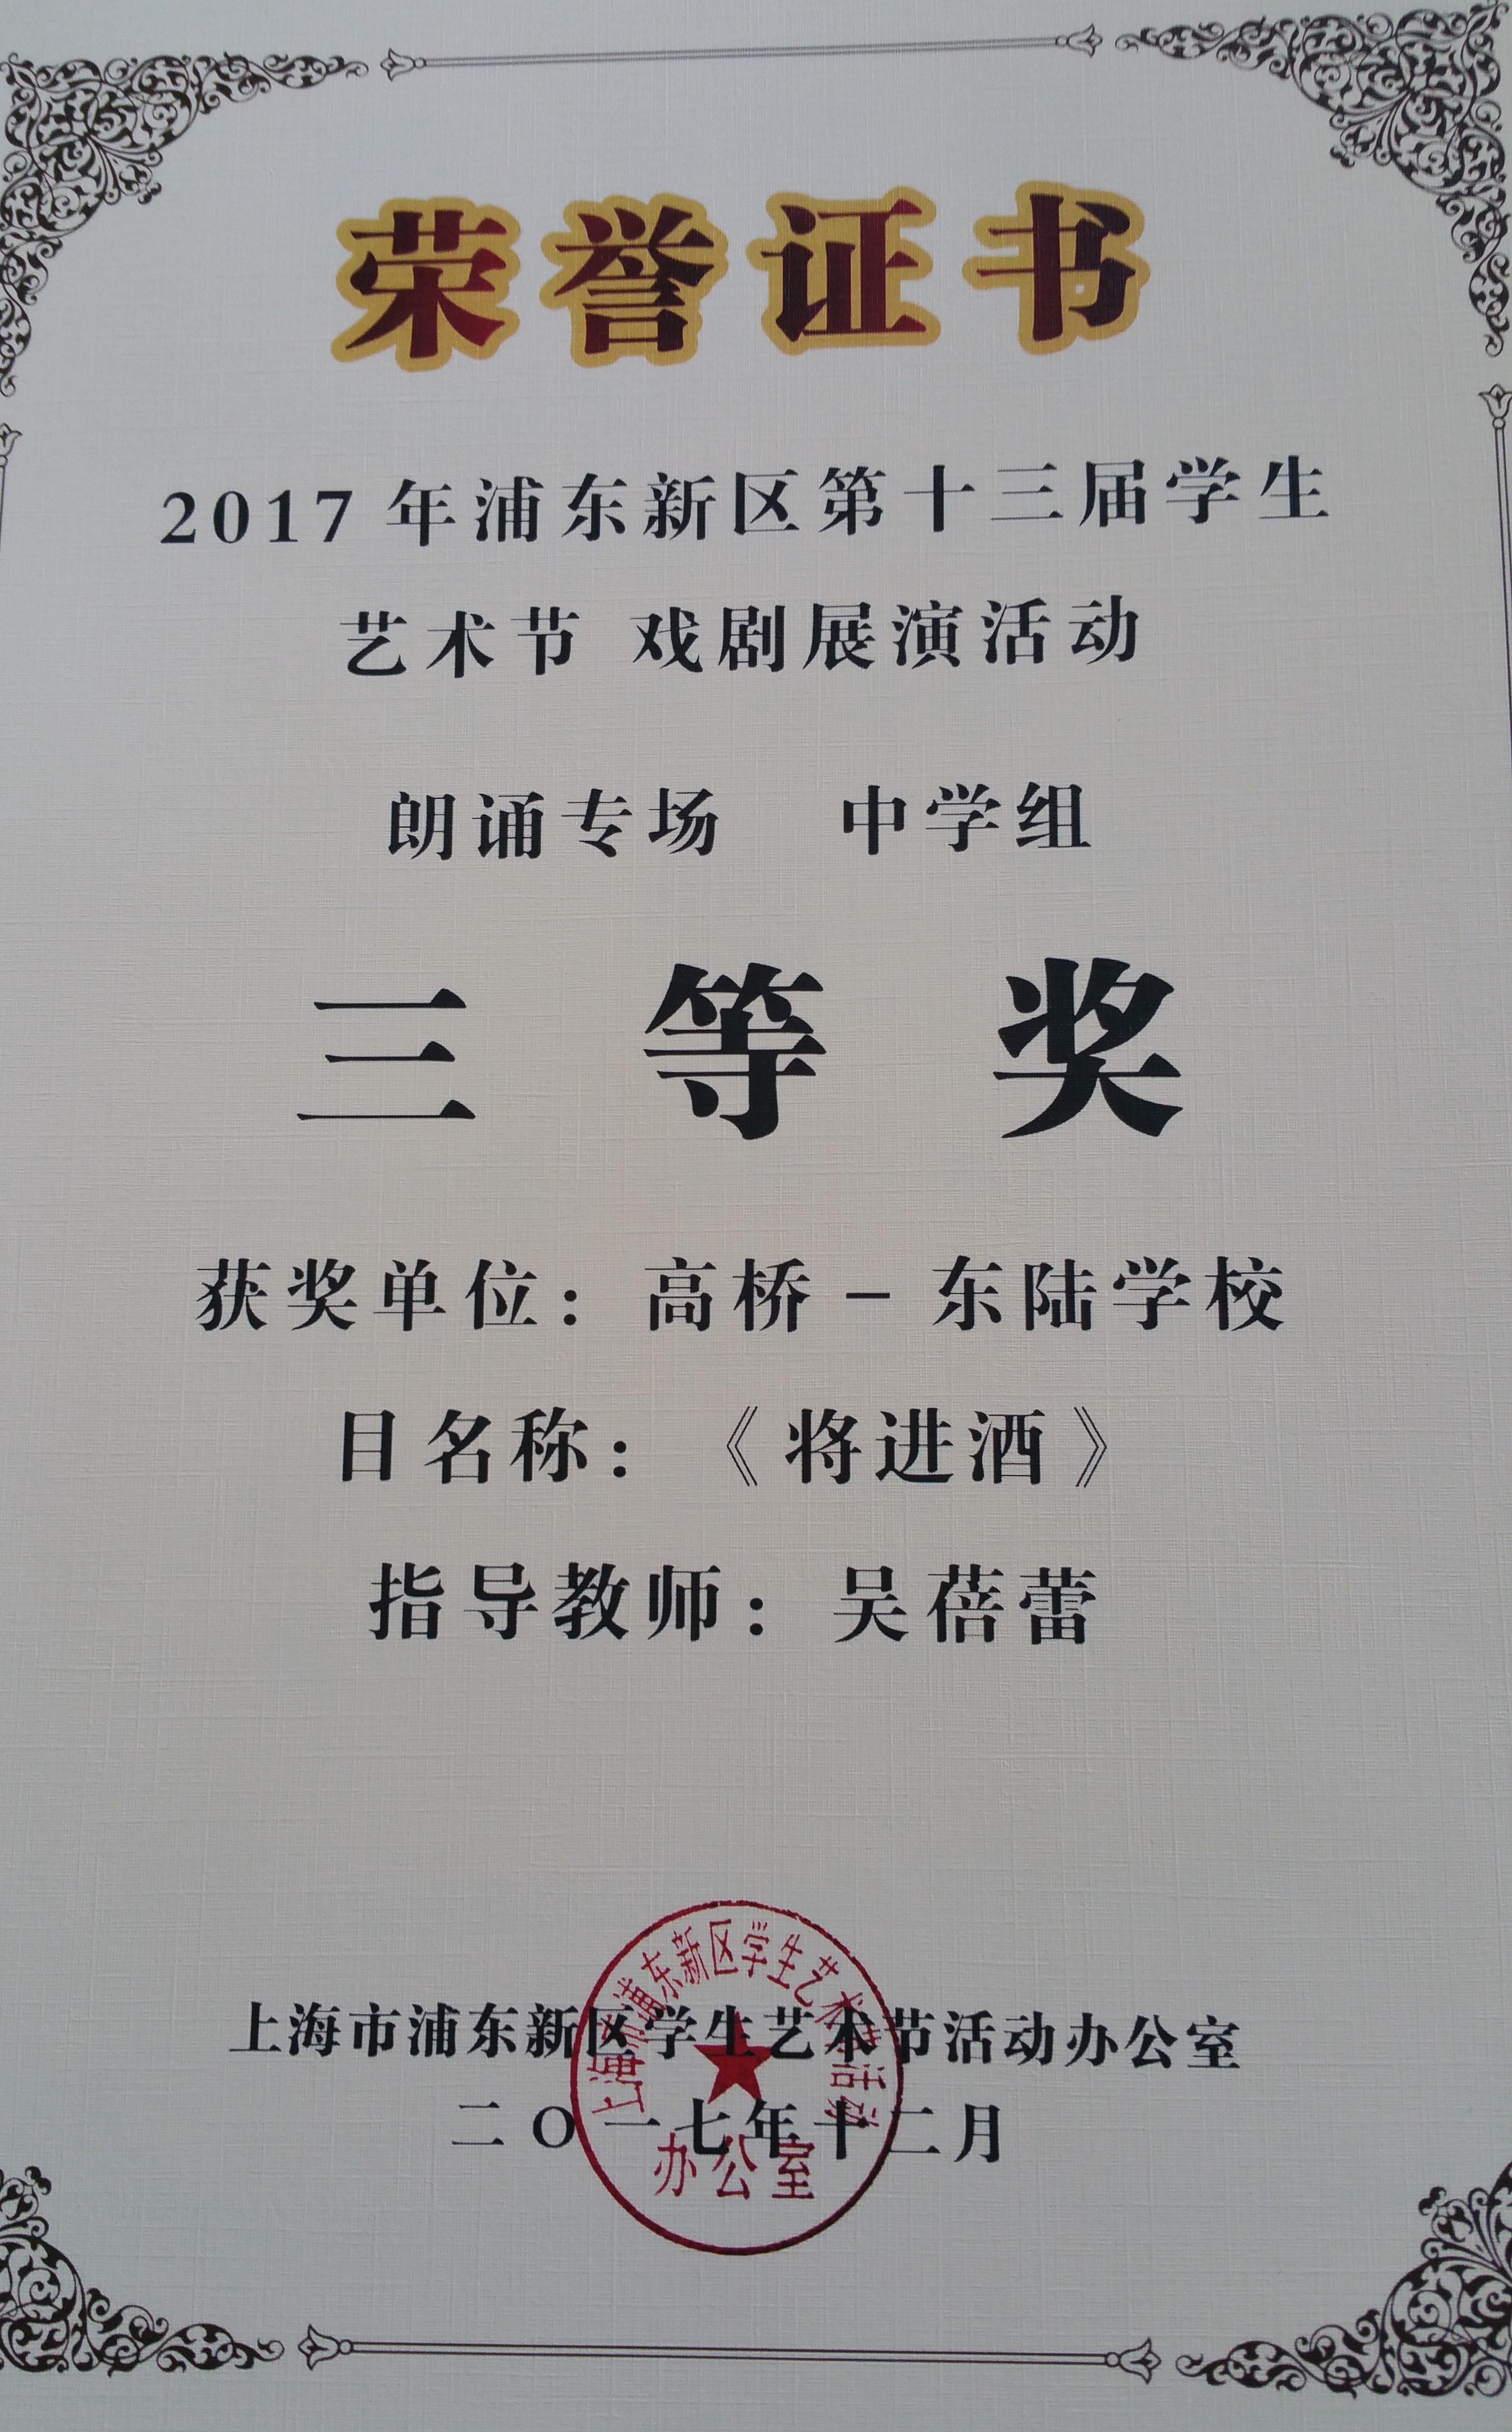 荣誉证书
2017年浦东新区第十三届学生
艺术节 戏剧展演活动
朗诵专场 中学组
三等奖
获奖单位：高桥-东陆学校
目名称：《将进酒》
指导教师：吴蓓蕾
上海市浦东新区学生艺术节活动办公室
二〇一七年十二月
上海市浦东新区学生艺术节活动
办公室